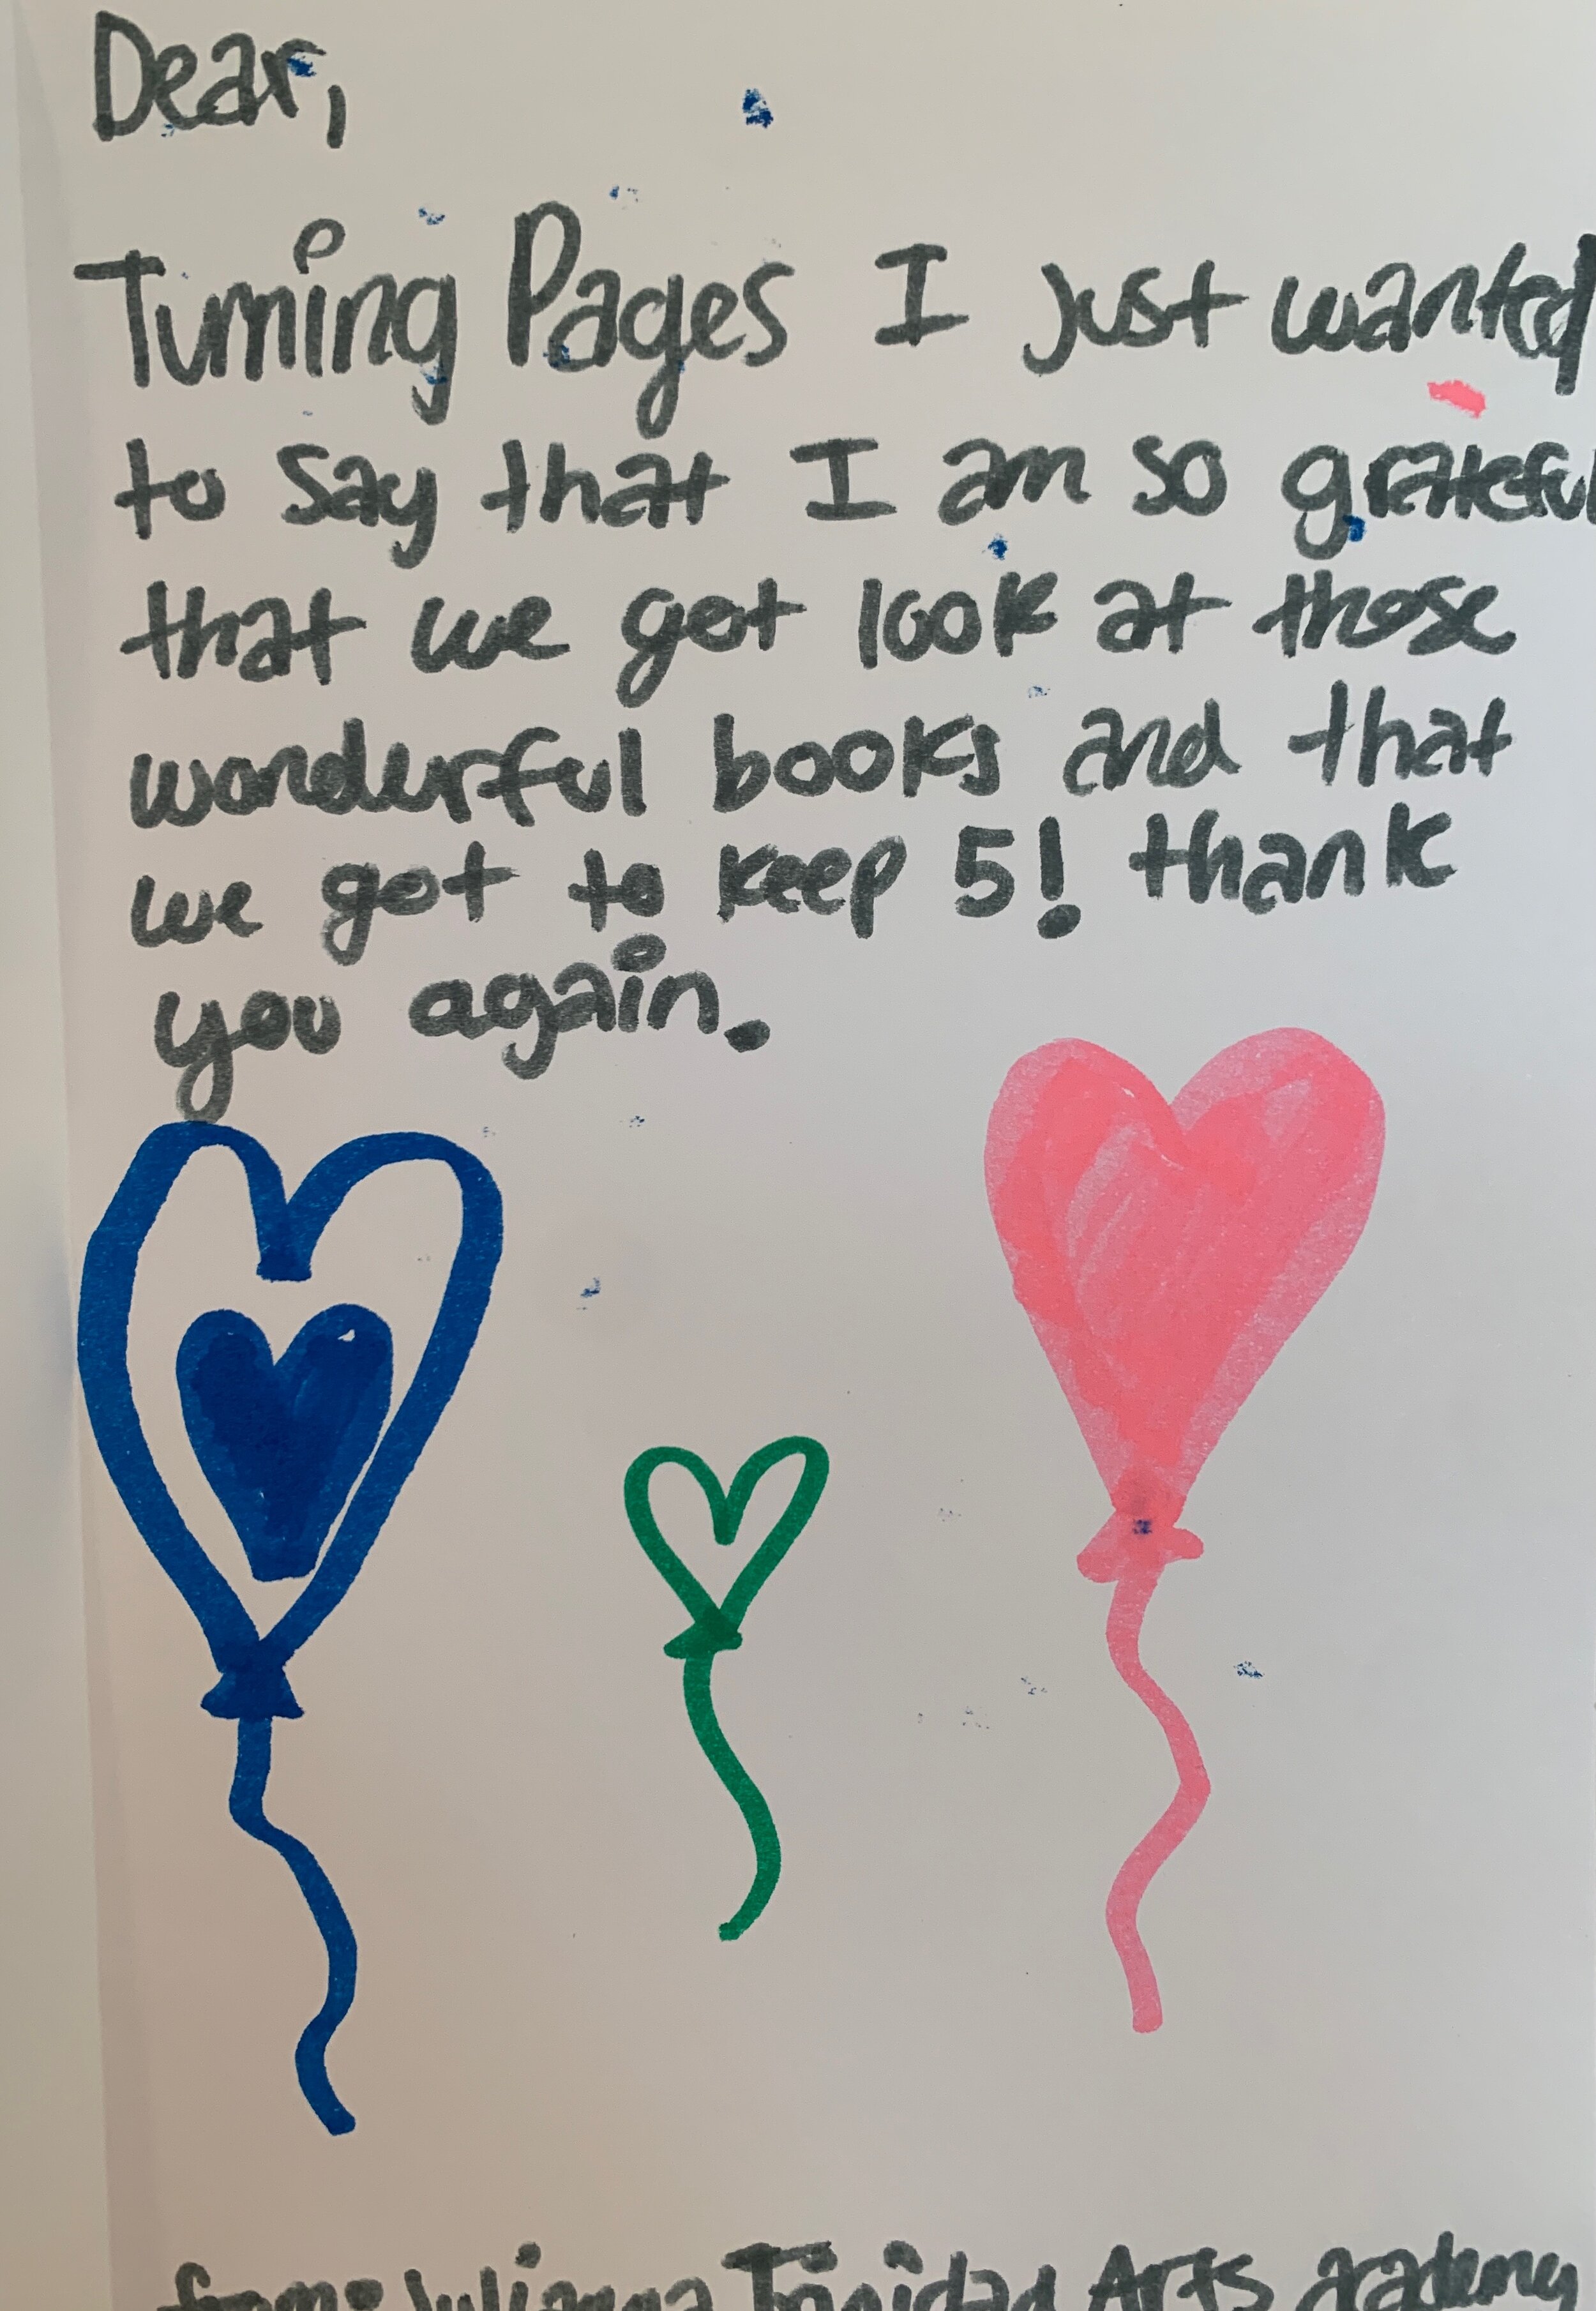 Dear,
Turning Pages I just wanted
to say that I am so grateful
that we got look at those
wonderful books and that
we got to keep 5! thank
you again.
from: Julianna Trinidad Arts academy